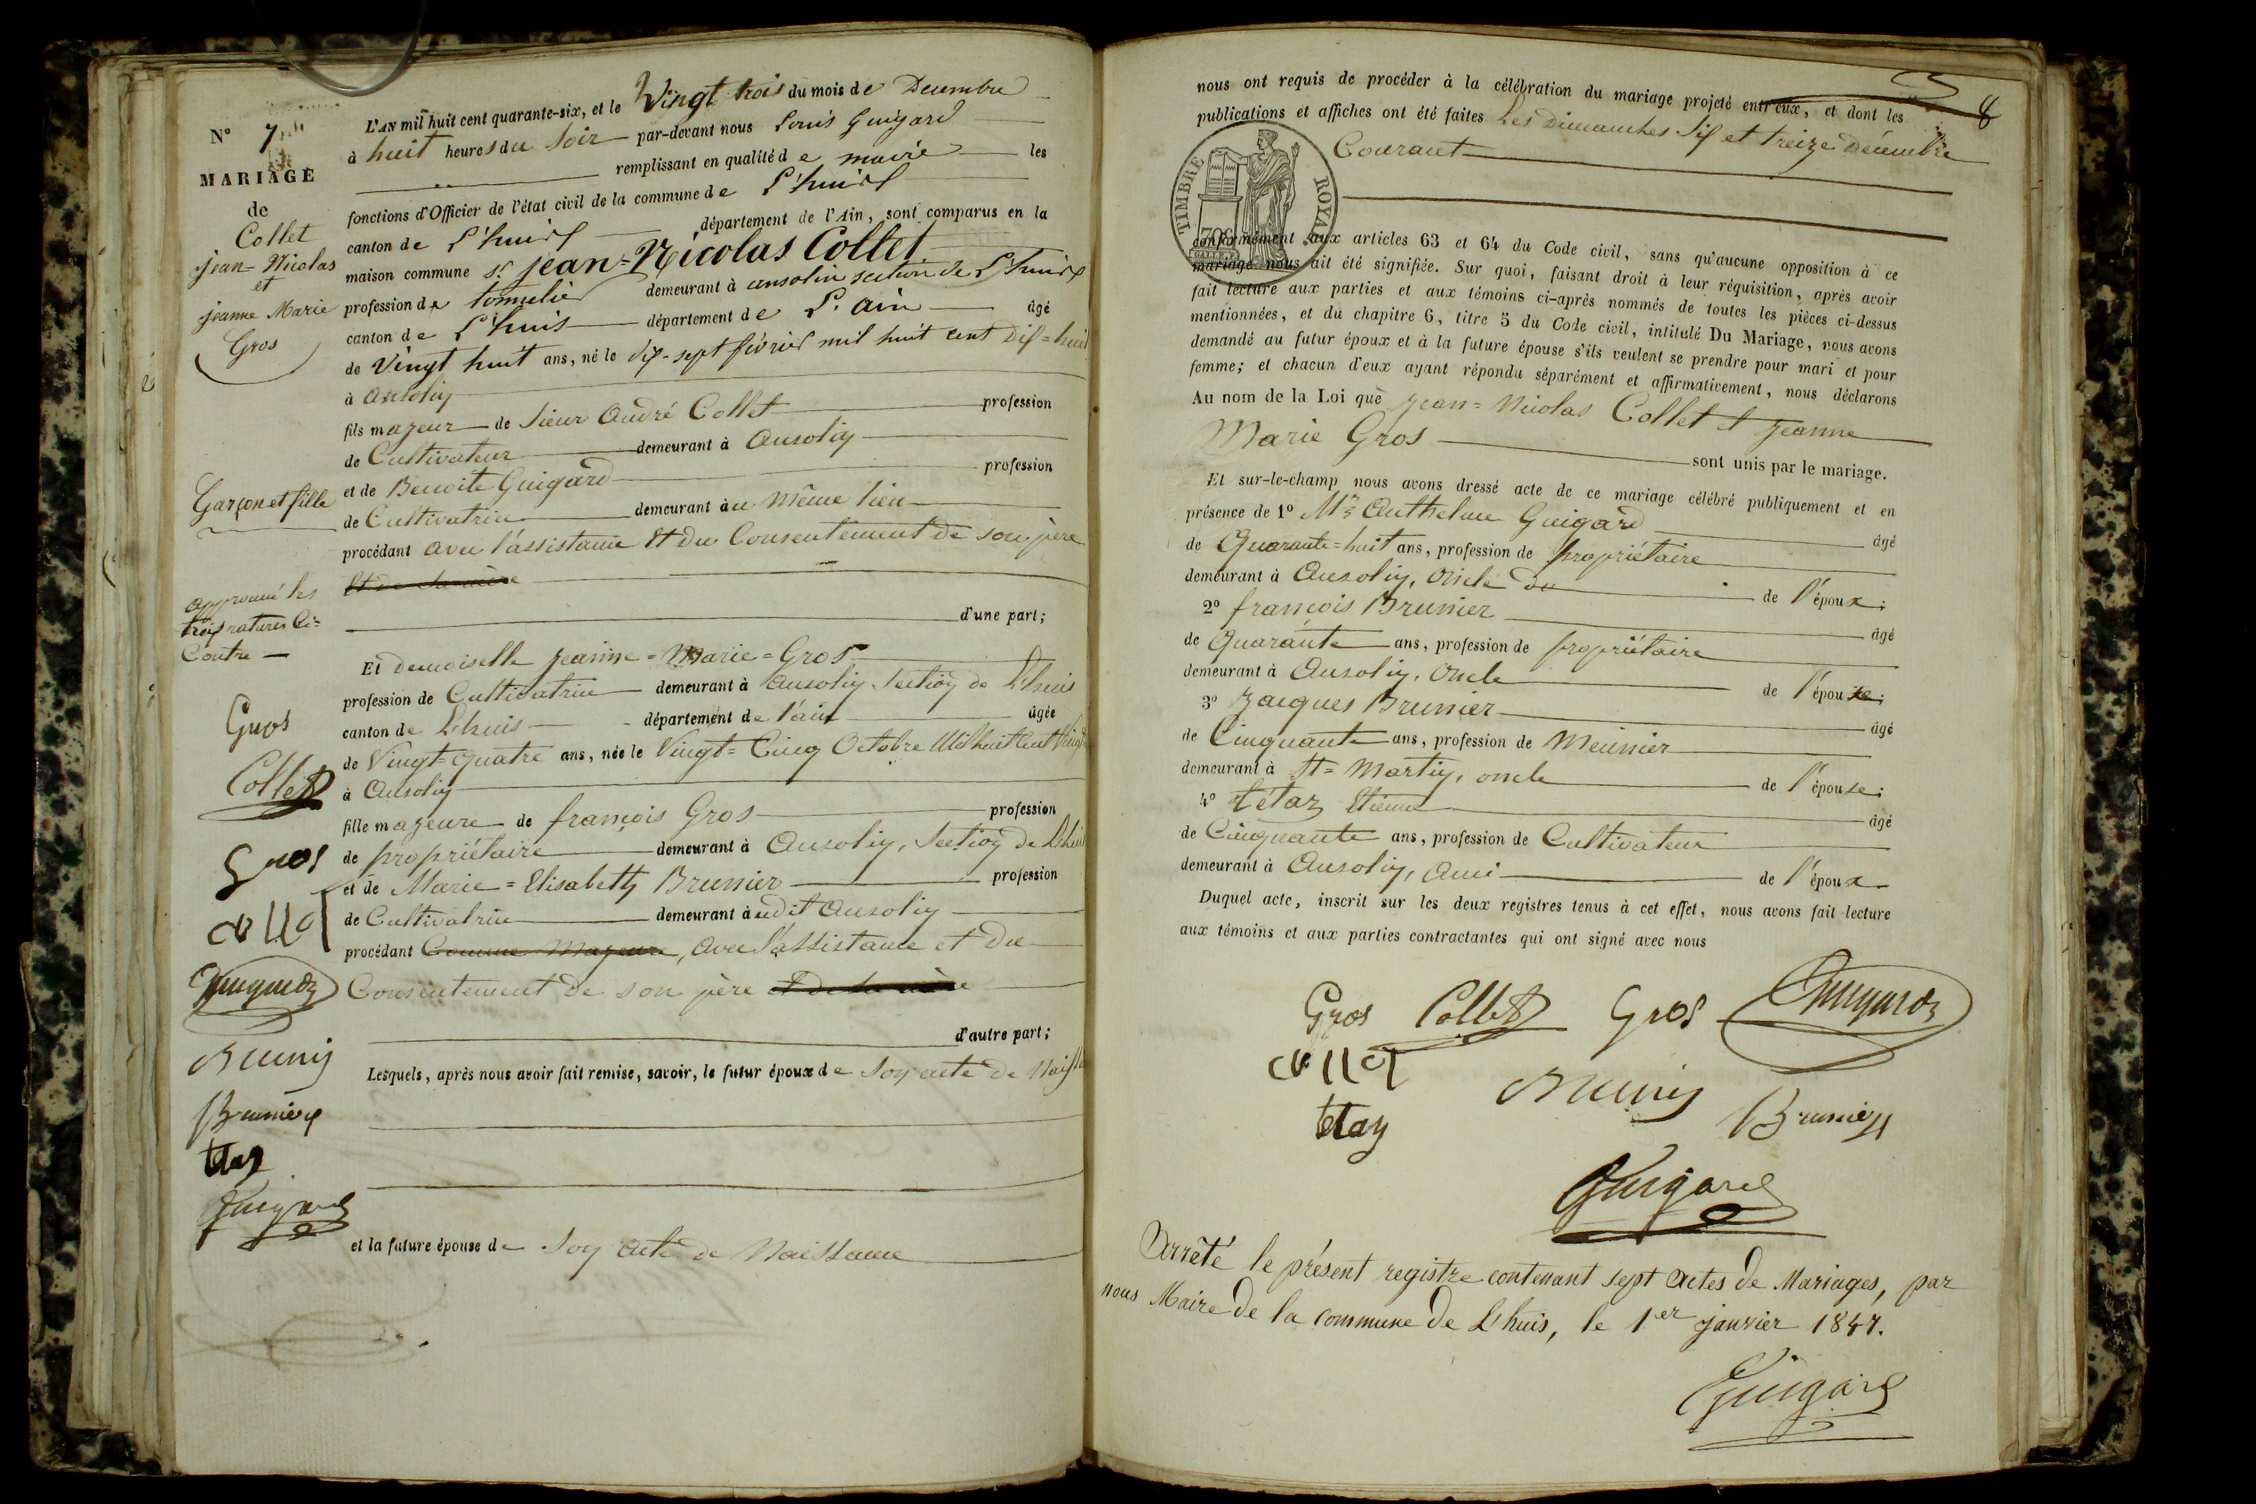 N° 7
MARIAGE
de
Collet
jean = Nicolas
et
jeanne Marie
Gros
Garçon et fille
approuvé les
trois ratures Ci=
Contre —
Gros
Collet
Gros
collet
Guigard
Brunier
Tétaz
Guigard
L'AN mil huit cent quarante-six, et le Vingt trois du mois de Decembre
à huit heures du Soir par-devant nous Louis Guigard
remplissant en qualité de maire les
fonctions d'Officier de l'état civil de la commune de L'huis
canton de L'huis département de l'Ain, sont comparus en la
maison commune sr jean=Nicolas Collet
profession de tonnelier demeurant à ansolin section de L'huis
canton de L'huis département de L'ain âgé
de Vingt huit ans, né le dix-sept février mil huit cent Dix=huit
à ansolin
fils majeur de Sieur André Collet profession
de Cultivateur demeurant à Ansolin
et de Benoite Guigard profession
de Cultivatrice demeurant au même lieu
procédant avec l'assistance Et du Consentement de son père
Et de sa mère
d'une part;
Et demoiselle jeanne=Marie=Gros
profession de Cultivatrice demeurant à Ansolin, Section de Lhuis
canton de Lhuis département de l'ain âgée
de Vingt=quatre ans, née le Vingt=Cinq Octobre Mil huit Cent Vingt
à Ansolin
fille majeure de françois Gros profession
de propriétaire demeurant à Ansolin, Section de Lhuis
et de Marie=Elisabeth Brunier profession
de Cultivatrice demeurant audit Ansolin
procédant Comme Majeure, avec l'assistance et du
Consentement de son père et de sa mère
d'autre part;
Lesquels, après nous avoir fait remise, savoir, le futur époux de Son acte de Naissce
et la future épouse de Son acte de Naissance
8
nous ont requis de procéder à la célébration du mariage projeté entr'eux, et dont les
publications et affiches ont été faites Les Dimanches Six et treize Décembre
Courant
TIMBRE ROYAL
conformément aux articles 63 et 64 du Code civil, sans qu'aucune opposition à ce
mariage nous ait été signifiée. Sur quoi, faisant droit à leur réquisition, après avoir
fait lecture aux parties et aux témoins ci-après nommés de toutes les pièces ci-dessus
mentionnées, et du chapitre 6, titre 5 du Code civil, intitulé Du Mariage, nous avons
demandé au futur époux et à la future épouse s'ils veulent se prendre pour mari et pour
femme; et chacun d'eux ayant répondu séparément et affirmativement, nous déclarons
Au nom de la Loi que jean=Nicolas Collet et jeanne
Marie Gros sont unis par le mariage.
Et sur-le-champ nous avons dressé acte de ce mariage célébré publiquement et en
présence de 1° Mr Anthelme Guigard âgé
de Quarante=huit ans, profession de propriétaire
demeurant à Ansolin, oncle du de l'époux;
2° françois Brunier âgé
de quarante ans, profession de propriétaire
demeurant à Ansolin, oncle de l'épouse;
3° Jacques Brunier âgé
de Cinquante ans, profession de Meunier
demeurant à St=Martin, oncle de l'épouse;
4° Tétaz Etienne âgé
de Cinquante ans, profession de Cultivateur
demeurant à Ansolin, ami de l'époux
Duquel acte, inscrit sur les deux registres tenus à cet effet, nous avons fait lecture
aux témoins et aux parties contractantes qui ont signé avec nous
Gros Collet Gros Guigard
collet Brunier Brunier
tétaz
Guigard
Arrêté le présent registre contenant sept actes de Mariages, par
nous Maire de la commune de Lhuis, le 1er janvier 1847.
Guigard